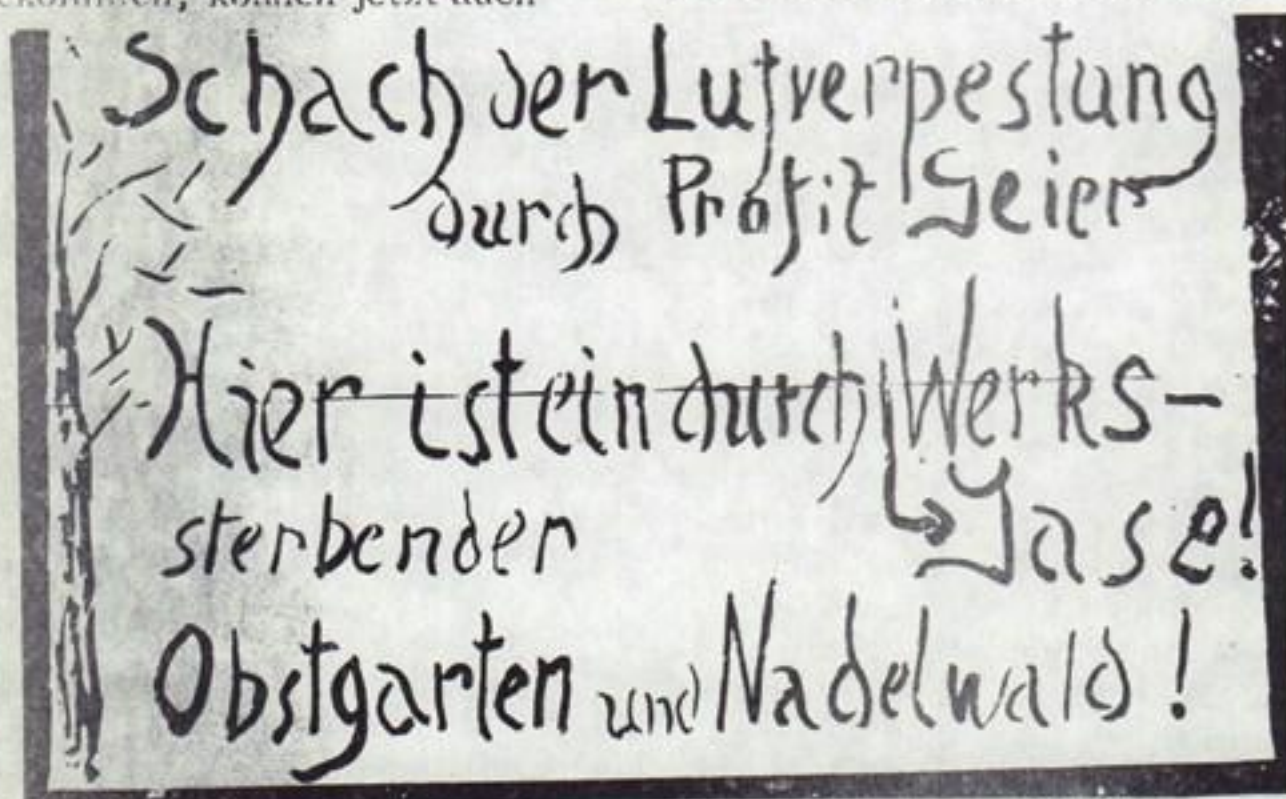 können jetzt auch
Schach der Lufverpestung
durch Profit Geier
Hier ist ein durch Werks-
sterbender Gase!
Obstgarten und Nadelwald!